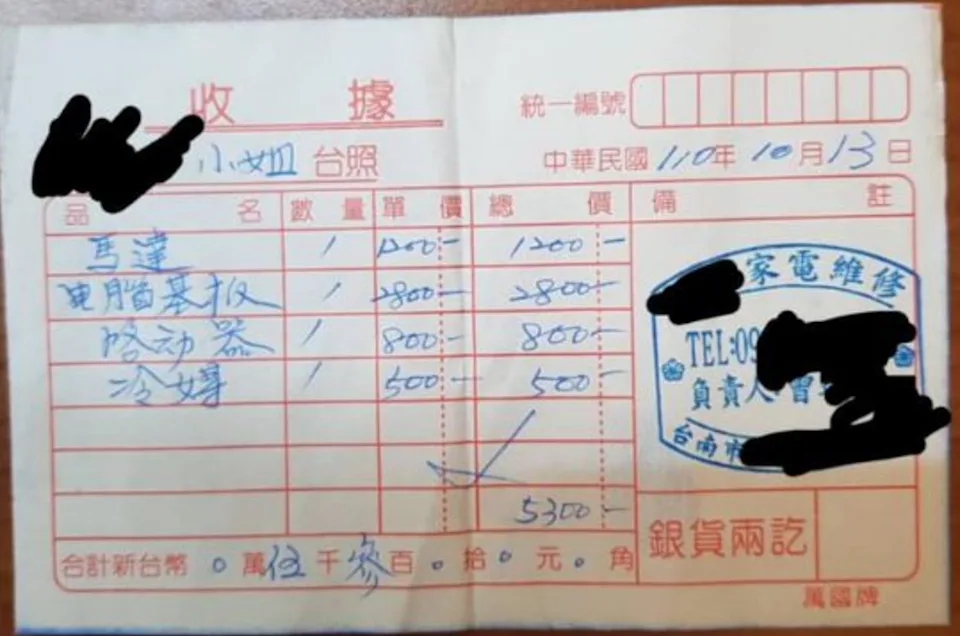 收據
統一編號
小姐 台照
中華民國 110年 10月 13日
品名 數量 單價 總價 備註
馬達 1 1200- 1200-
电腦基板 1 2800- 2800-
啓动器 1 800- 800-
冷媒 1 500- 500-
5300-
家電維修
TEL:09
負責人
台南市
合計新台幣 0萬伍千參百0拾0元0角
銀貨兩訖
萬國牌